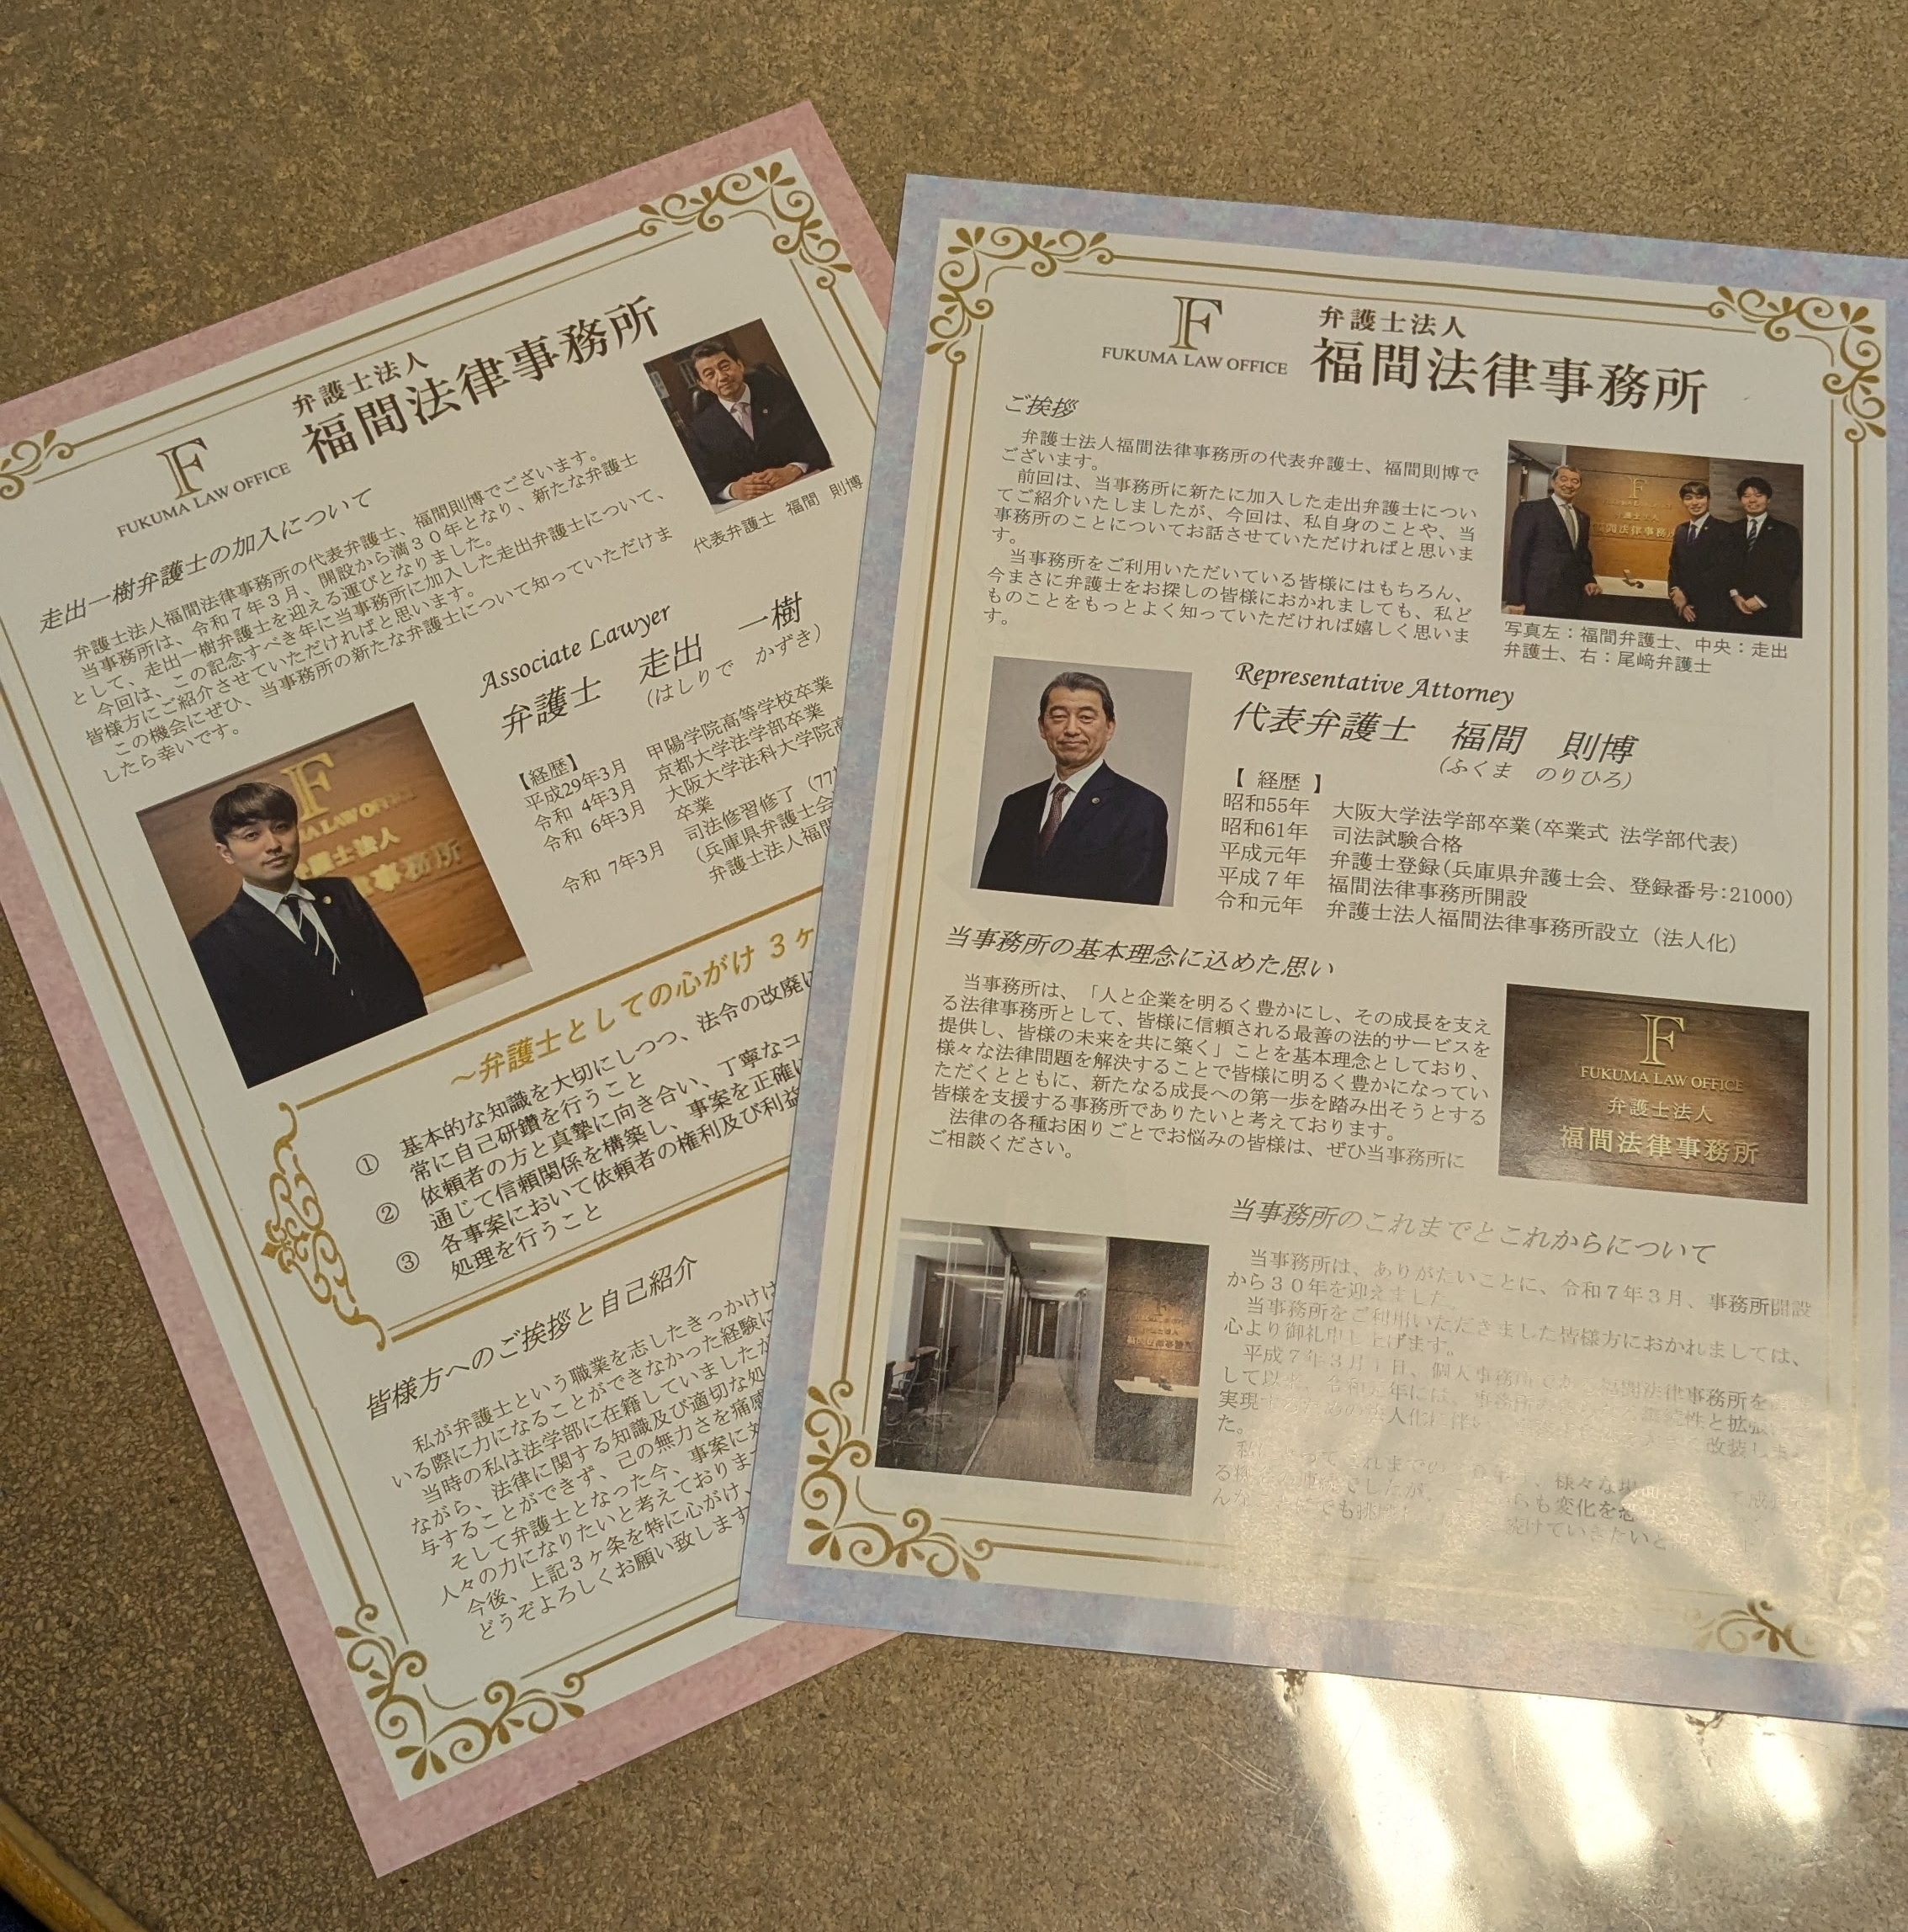 F
FUKUMA LAW OFFICE
弁護士法人
福間法律事務所
代表弁護士 福間 則博
走出一樹弁護士の加入について
弁護士法人福間法律事務所の代表弁護士、福間則博でございます。
当事務所は、令和7年3月、開設から満30年となり、新たな弁護士
として、走出一樹弁護士を迎える運びとなりました。
今回は、この記念すべき年に当事務所に加入した走出弁護士について、
皆様方にご紹介させていただければと思います。
この機会にぜひ、当事務所の新たな弁護士について知っていただけま
したら幸いです。
Associate Lawyer
弁護士 走出 一樹
(はしりで かずき)
【経歴】
平成29年3月 甲陽学院高等学校卒業
令和 4年3月 京都大学法学部卒業
令和 6年3月 大阪大学法科大学院高
卒業
令和 7年3月 司法修習修了(77
(兵庫県弁護士会
弁護士法人福間
F
弁護士法人
事務所
~弁護士としての心がけ3ヶ
① 基本的な知識を大切にしつつ、法令の改廃に
常に自己研鑽を行うこと
② 依頼者の方と真摯に向き合い、丁寧なコ
通じて信頼関係を構築し、事案を正確に
③ 各事案において依頼者の権利及び利益
処理を行うこと
皆様方へのご挨拶と自己紹介
私が弁護士という職業を志したきっかけは
いる際に力になることができなかった経験に
当時の私は法学部に在籍していましたが
ながら、法律に関する知識及び適切な処
与することができず、己の無力さを痛感
そして弁護士となった今、事案に対
人々の力になりたいと考えておりま
今後、上記3ヶ条を特に心がけ、
どうぞよろしくお願い致します
F
FUKUMA LAW OFFICE
弁護士法人
福間法律事務所
ご挨拶
弁護士法人福間法律事務所の代表弁護士、福間則博で
ございます。
前回は、当事務所に新たに加入した走出弁護士につい
てご紹介いたしましたが、今回は、私自身のことや、当
事務所のことについてお話させていただければと思いま
す。
当事務所をご利用いただいている皆様にはもちろん、
今まさに弁護士をお探しの皆様におかれましても、私ど
ものことをもっとよく知っていただければ嬉しく思いま
す。
写真左：福間弁護士、中央：走出
弁護士、右：尾﨑弁護士
Representative Attorney
代表弁護士 福間 則博
(ふくま のりひろ)
【 経歴 】
昭和55年 大阪大学法学部卒業(卒業式 法学部代表)
昭和61年 司法試験合格
平成元年 弁護士登録(兵庫県弁護士会、登録番号:21000)
平成7年 福間法律事務所開設
令和元年 弁護士法人福間法律事務所設立(法人化)
当事務所の基本理念に込めた思い
当事務所は、「人と企業を明るく豊かにし、その成長を支え
る法律事務所として、皆様に信頼される最善の法的サービスを
提供し、皆様の未来を共に築く」ことを基本理念としており、
様々な法律問題を解決することで皆様に明るく豊かになってい
ただくとともに、新たなる成長への第一歩を踏み出そうとする
皆様を支援する事務所でありたいと考えております。
法律の各種お困りごとでお悩みの皆様は、ぜひ当事務所に
ご相談ください。
F
FUKUMA LAW OFFICE
弁護士法人
福間法律事務所
当事務所のこれまでとこれからについて
当事務所は、ありがたいことに、令和7年3月、事務所開設
から30年を迎えました。
当事務所をご利用いただきました皆様方におかれましては、
心より御礼申し上げます。
平成7年3月1日、個人事務所 福間法律事務所を
して以来、令和元年には、事務所 性と拡張
実現 人化に伴い 改装しま
た。
私 これまでの 様々な場面
でしたが、 らも変化を恐
んな でも挑 続けていきたいと